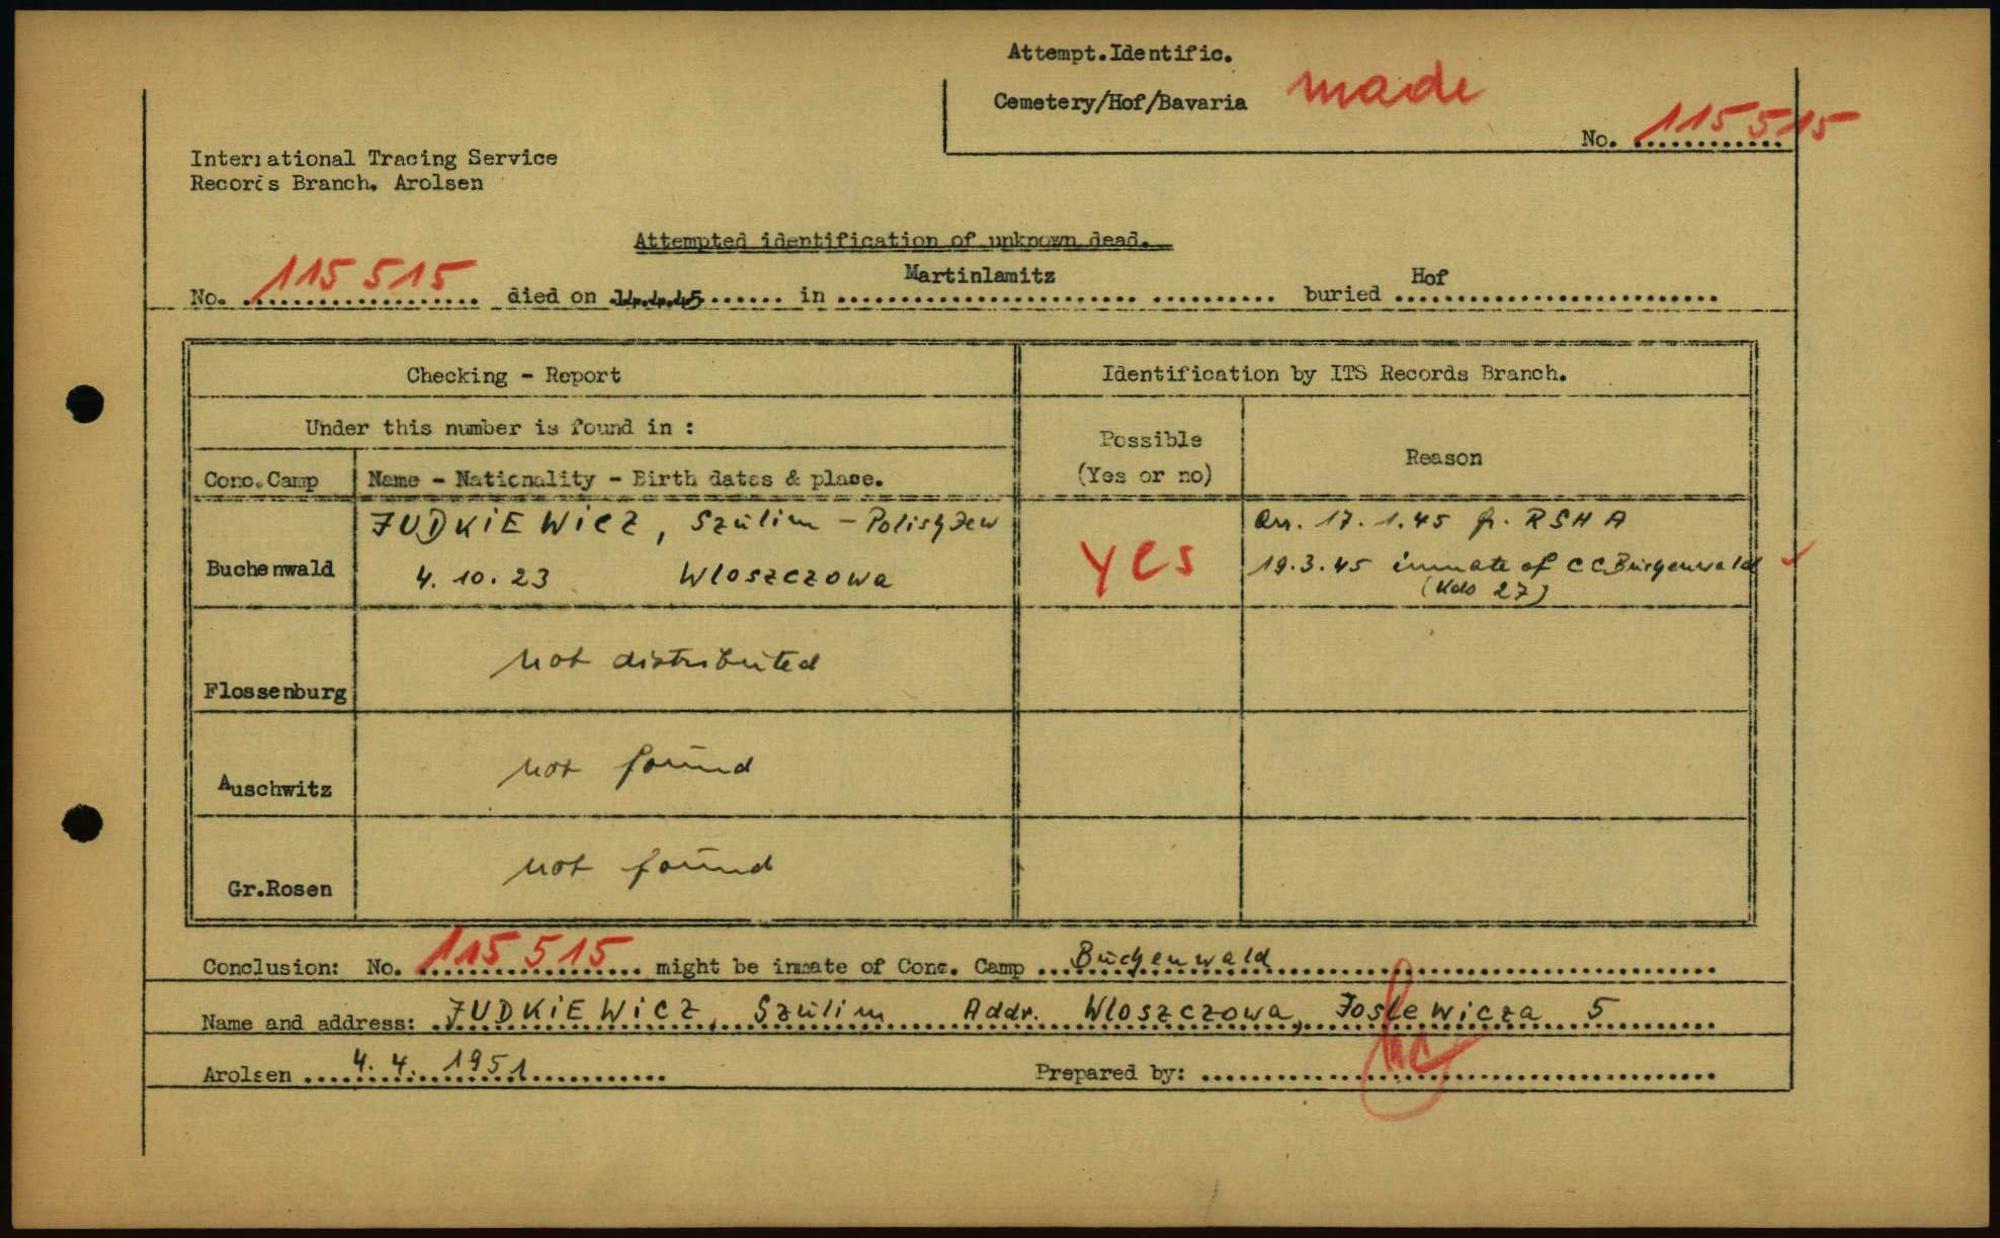 Attempt.Identific.
Cemetery/Hof/Bavaria made
No. 115515
International Tracing Service
Records Branch, Arolsen
Attempted identification of unknown dead.
No. 115 515 died on 14.4.45 in Martinlamitz buried Hof
Checking - Report
Identification by ITS Records Branch.
Under this number is found in :
Possible
(Yes or no)
Reason
Conc.Camp
Name - Nationality - Birth dates & place.
Buchenwald
JUDKIEWICZ, Szulim - Polish Jew
4. 10. 23 Wloszczowa
yes
Arr. 17. 1. 45 fr. RSHA
19.3.45 inmate of CC Buchenwald
(Kdo 27)
Flossenburg
not distributed
Auschwitz
not found
Gr.Rosen
not found
Conclusion: No. 115 515 might be inmate of Conc. Camp Buchenwald
Name and address: JUDKIEWICZ, Szulim Addr. Wloszczowa, Joslewicza 5
Arolsen 4. 4. 1951 Prepared by: